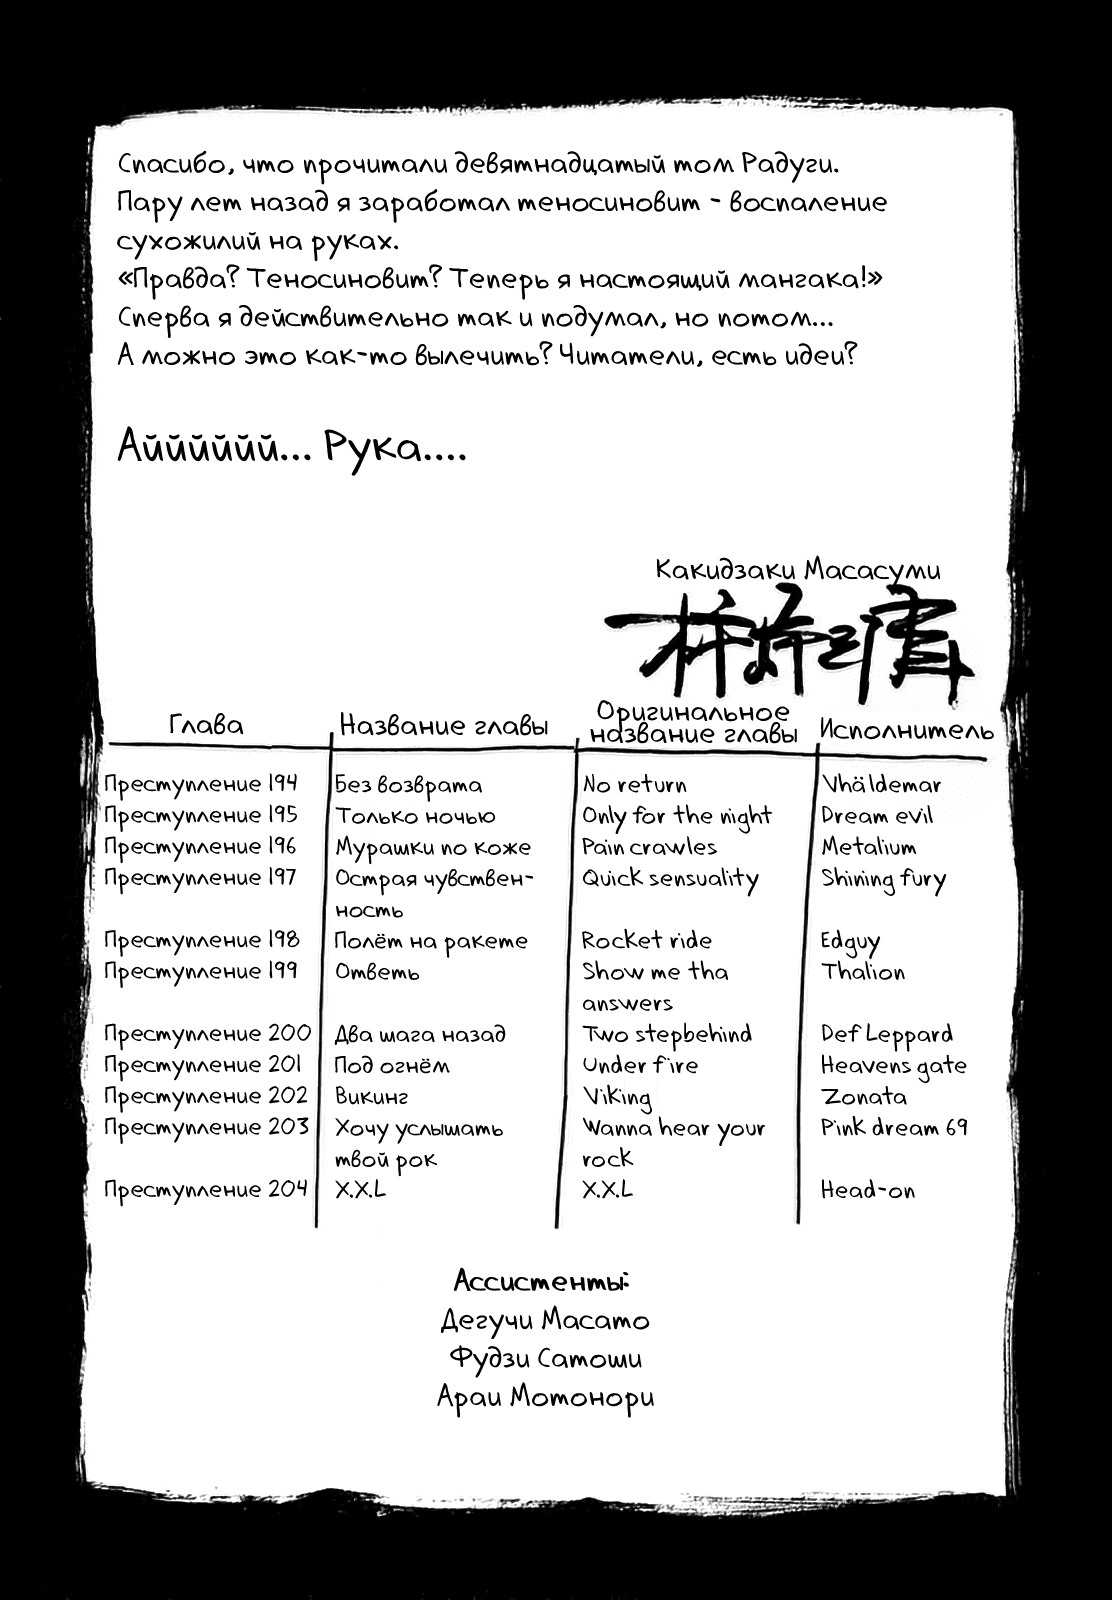 Спасибо, что прочитали девятнадцатый том Радуги.
Пару лет назад я заработал теносиновит - воспаление
сухожилий на руках.
«Правда? Теносиновит? Теперь я настоящий мангака!»
Сперва я действительно так и подумал, но потом...
А можно это как-то вылечить? Читатели, есть идеи?
Аййййй́й... Рука....
Какидзаки Масасуми
柿崎正澄
Глава Название главы Оригинальное название главы Исполнитель
Преступление 194 Без возврата No return Vhäldemar
Преступление 195 Только ночью Only for the night Dream evil
Преступление 196 Мурашки по коже Pain crawles Metalium
Преступление 197 Острая чувствен- Quick sensuality Shining fury
ность
Преступление 198 Полёт на ракете Rocket ride Edguy
Преступление 199 Ответь Show me tha Thalion
answers
Преступление 200 Два шага назад Two stepbehind Def Leppard
Преступление 201 Под огнём Under fire Heavens gate
Преступление 202 Викинг Viking Zonata
Преступление 203 Хочу услышать Wanna hear your Pink dream 69
твой рок rock
Преступление 204 X.X.L X.X.L Head-on
Ассистенты:
Дегучи Масато
Фудзи Сатоши
Араи Мотонори